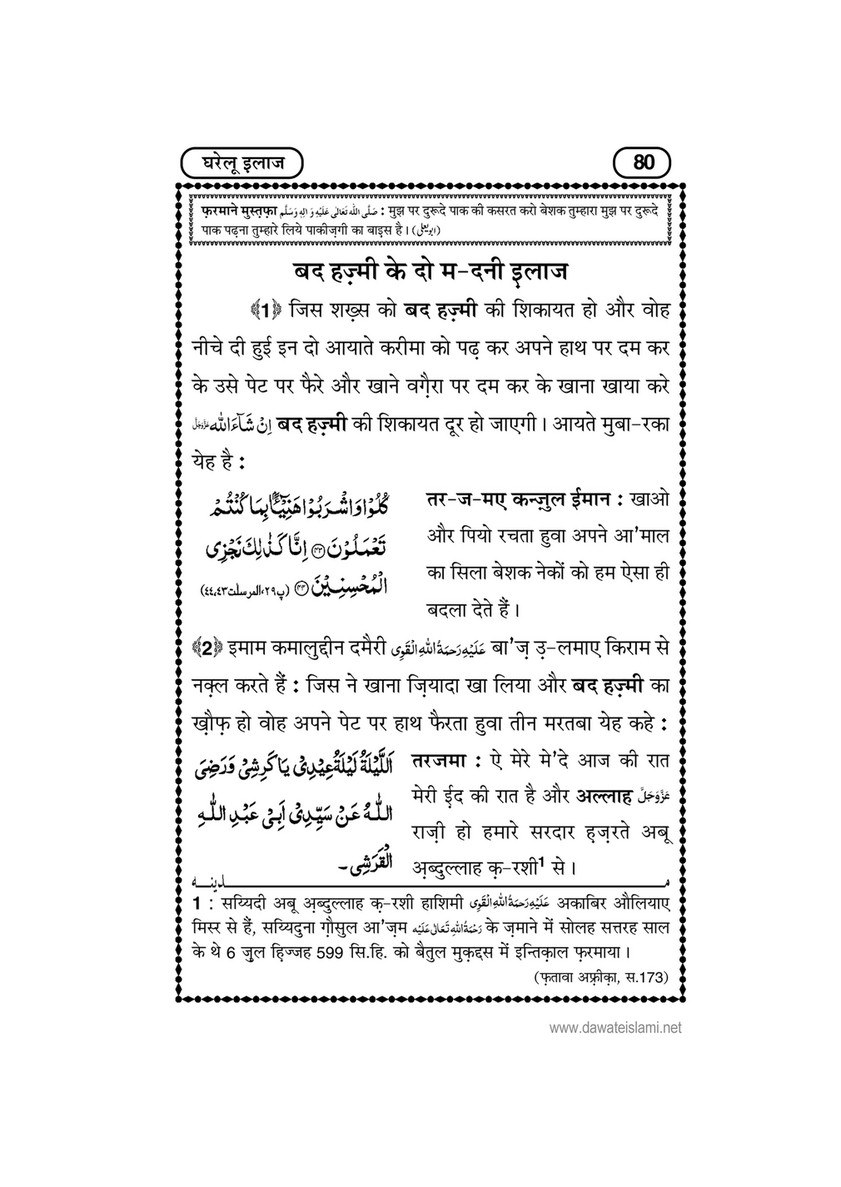 घरेलू इलाज
80
फ़रमाने मुस्तफ़ा صَلَّى اللّٰهُ تَعَالٰى عَلَيْهِ وَاٰلِهٖ وَسَلَّم : मुझ पर दुरूदे पाक की कसरत करो बेशक तुम्हारा मुझ पर दुरूदे
पाक पढ़ना तुम्हारे लिये पाकीज़गी का बाइस है । (ابو یعلی)
बद हज़्मी के दो म-दनी इलाज
﴾1﴿ जिस शख़्स को बद हज़्मी की शिकायत हो और वोह
नीचे दी हुई इन दो आयाते करीमा को पढ़ कर अपने हाथ पर दम कर
के उसे पेट पर फैरे और खाने वग़ैरा पर दम कर के खाना खाया करे
اِنْ شَآءَاللّٰه عَزَّوَجَلَّ बद हज़्मी की शिकायत दूर हो जाएगी । आयते मुबा-रका
येह है :
كُلُوْا وَاشْرَبُوْا هَنِيْٓـًٔۢا بِمَا كُنْتُمْ
تَعْمَلُوْنَ ﴿۴۳﴾ اِنَّا كَذٰلِكَ نَجْزِى
الْمُحْسِنِيْنَ ﴿۴۴﴾ (پ۲۹،المرسلٰت۴۴،۴۳)
तर-ज-मए कन्ज़ुल ईमान : खाओ
और पियो रचता हुवा अपने आ'माल
का सिला बेशक नेकों को हम ऐसा ही
बदला देते हैं ।
﴾2﴿ इमाम कमालुद्दीन दमैरी عَلَيْهِ رَحمَةُ اللّٰهِ الْقَوِى बा'ज़ उ़-लमाए किराम से
नक़्ल करते हैं : जिस ने खाना ज़ियादा खा लिया और बद हज़्मी का
ख़ौफ़ हो वोह अपने पेट पर हाथ फैरता हुवा तीन मरतबा येह कहे :
اَللَّيْلَةُ لَيْلَةُ عِيْدِىْ يَا كَرِشِىْ وَرَضِىَ
اللّٰهُ عَنْ سَيِّدِىْ اَبِىْ عَبْدِ اللّٰهِ
الْقَرَشِى ۔
तरजमा : ऐ मेरे मे'दे आज की रात
मेरी ईद की रात है और अल्लाह عَزَّوَجَلَّ
राज़ी हो हमारे सरदार ह़ज़रते अबू
अ़ब्दुल्लाह क़-रशी1 से ।
مدينه
1 : सय्यिदी अबू अ़ब्दुल्लाह क़-रशी हाशिमी عَلَيْهِ رَحمَةُ اللّٰهِ الْقَوِى अकाबिर औलियाए
मिस्र से हैं, सय्यिदुना ग़ौसुल आ'ज़म رَحْمَةُ اللّٰهِ تَعَالٰى عَلَيْهِ के ज़माने में सोलह सत्तरह साल
के थे 6 ज़ुल ह़िज्जह 599 सि.हि. को बैतुल मुक़द्दस में इन्तिक़ाल फ़रमाया ।
(फ़तावा अफ़्रीक़ा, स.173)
www.dawateislami.net